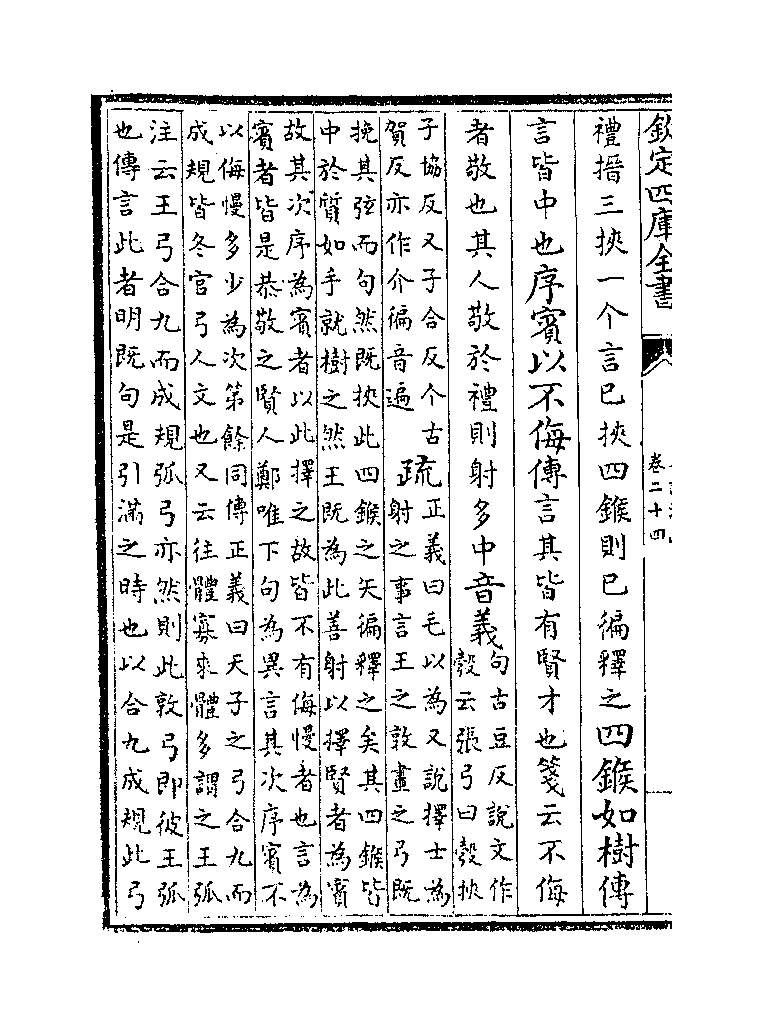 欽定四庫全書
卷二十四
禮搢三挾一个言已挾四鍭則已徧釋之四鍭如樹傳
言皆中也序賓以不侮傳言其皆有賢才也箋云不侮
者敬也其人敬於禮則射多中音義
句古豆反說文作
彀云張弓曰彀挾
子協反又子合反个古
賀反亦作介徧音遍
疏
正義曰毛以為又說擇士為
射之事言王之敦畫之弓既
挽其弦而句然既挾此四鍭之矢徧釋之矣其四鍭皆
中於質如手就樹之然王既為此善射以擇賢者為賓
故其次序為賓者以此擇之故皆不有侮慢者也言為
賓者皆是恭敬之賢人鄭唯下句為異言其次序賓不
以侮慢多少為次第餘同傳正義曰天子之弓合九而
成規皆冬官弓人文也又云往體寡來體多謂之王弧
注云王弓合九而成規弧弓亦然則此敦弓即彼王弧
也傳言此者明既句是引滿之時也以合九成規此弓